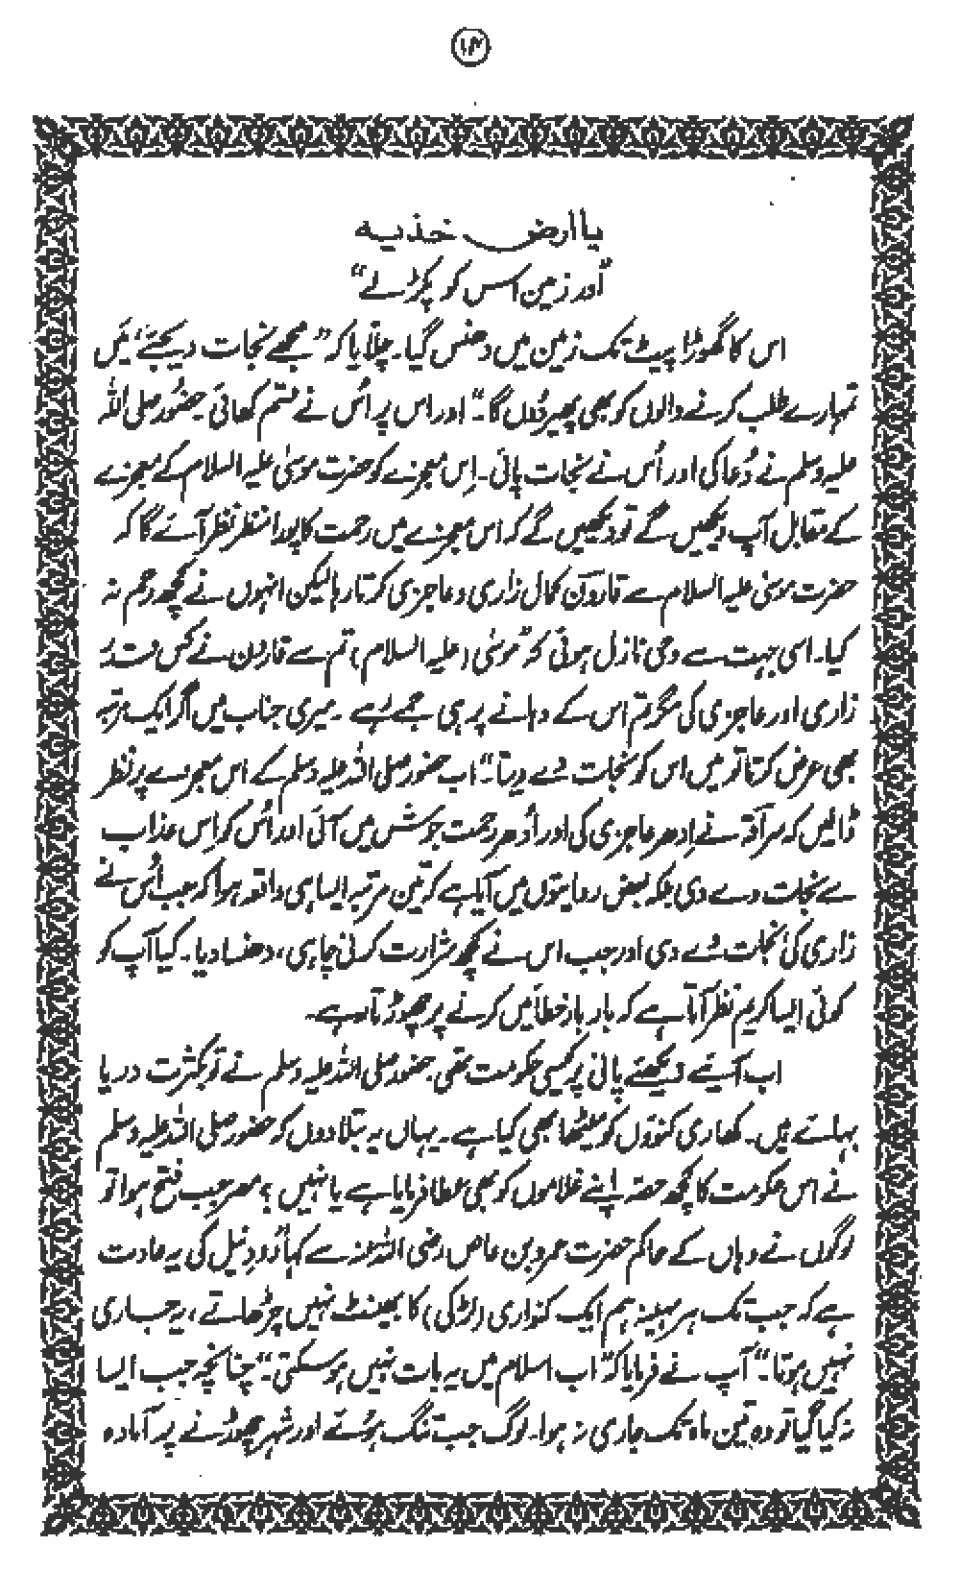 ۱۴
یا ارض خذیہ
"اور زمین اسس کو پکڑ لے"
اس کا گھوڑا پیٹ تک زمین میں دھنس گیا۔ چلّایا کہ "مجھے نجات دیجئے، میں
تمہارے طلب کرنے والوں کو بھی پھیر دُوں گا۔" اور اس پر اُس نے قسم کھائی حضور صلی اللہ
علیہ وسلم نے دُعا کی اور اُس نے نجات پائی۔ اِس معجزے کو حضرت موسیٰ علیہ السلام کے معجزے
کے مقابل آپ دیکھیں گے تو دیکھیں گے کہ اس معجزے میں رحمت کا پورا منظر نظر آئے گا کہ
حضرت موسیٰ علیہ السلام سے قارون کمال زاری و عاجزی کرتا رہا لیکن انہوں نے کچھ رحم نہ
کیا۔ اسی جہت سے وحی نازل ہوئی کہ "موسیٰ (علیہ السلام) تم سے قارون نے کس قدر
زاری اور عاجزی کی مگر تم اس کے دہانے پر ہی جمے رہے۔ میری جناب میں اگر ایک مرتبہ
بھی عرض کرتا تو میں اس کو نجات دے دیتا۔" اب حضور صلی اللہ علیہ وسلم کے اس معجزے پر نظر
ڈالیں کہ سراقہ نے اِدھر عاجزی کی اور اُدھر رحمت جوش میں آئی اور اُس کو اِس عذاب
سے نجات دے دی بلکہ بعض روایتوں میں آیا ہے کہ تین مرتبہ ایسا ہی واقعہ ہوا کہ جب اُس نے
زاری کی نجات دے دی اور جب اس نے کچھ شرارت کرنی چاہی، دھنسا دیا۔ کیا آپ کو
کوئی ایسا کریم نظر آتا ہے کہ بار بار خطائیں کرنے پر چھوڑتا رہے۔
اب آئیے دیکھئے پانی پر کیسی حکومت تھی۔ حضور صلی اللہ علیہ وسلم نے تو بکثرت دریا
بہائے ہیں۔ کھاری کنوؤں کو میٹھا بھی کیا ہے۔ یہاں یہ بتلا دوں کہ حضور صلی اللہ علیہ وسلم
نے اس حکومت کا کچھ حصہ اپنے غلاموں کو بھی عطا فرمایا ہے یا نہیں؟ مصر جب فتح ہوا تو
لوگوں نے وہاں کے حاکم حضرت عمرو بن عاص رضی اللہ عنہ سے کہا "رُودِ نیل کی یہ عادت
ہے کہ جب تک ہر مہینہ ہم ایک کنواری (لڑکی) کا بھینٹ نہیں چڑھاتے، یہ جاری
نہیں ہوتا۔" آپ نے فرمایا کہ "اب اسلام میں یہ بات نہیں ہو سکتی۔" چنانچہ جب ایسا
نہ کیا گیا تو وہ تین ماہ تک جاری نہ ہوا۔ لوگ جب تنگ ہوئے اور شہر چھوڑنے پر آمادہ